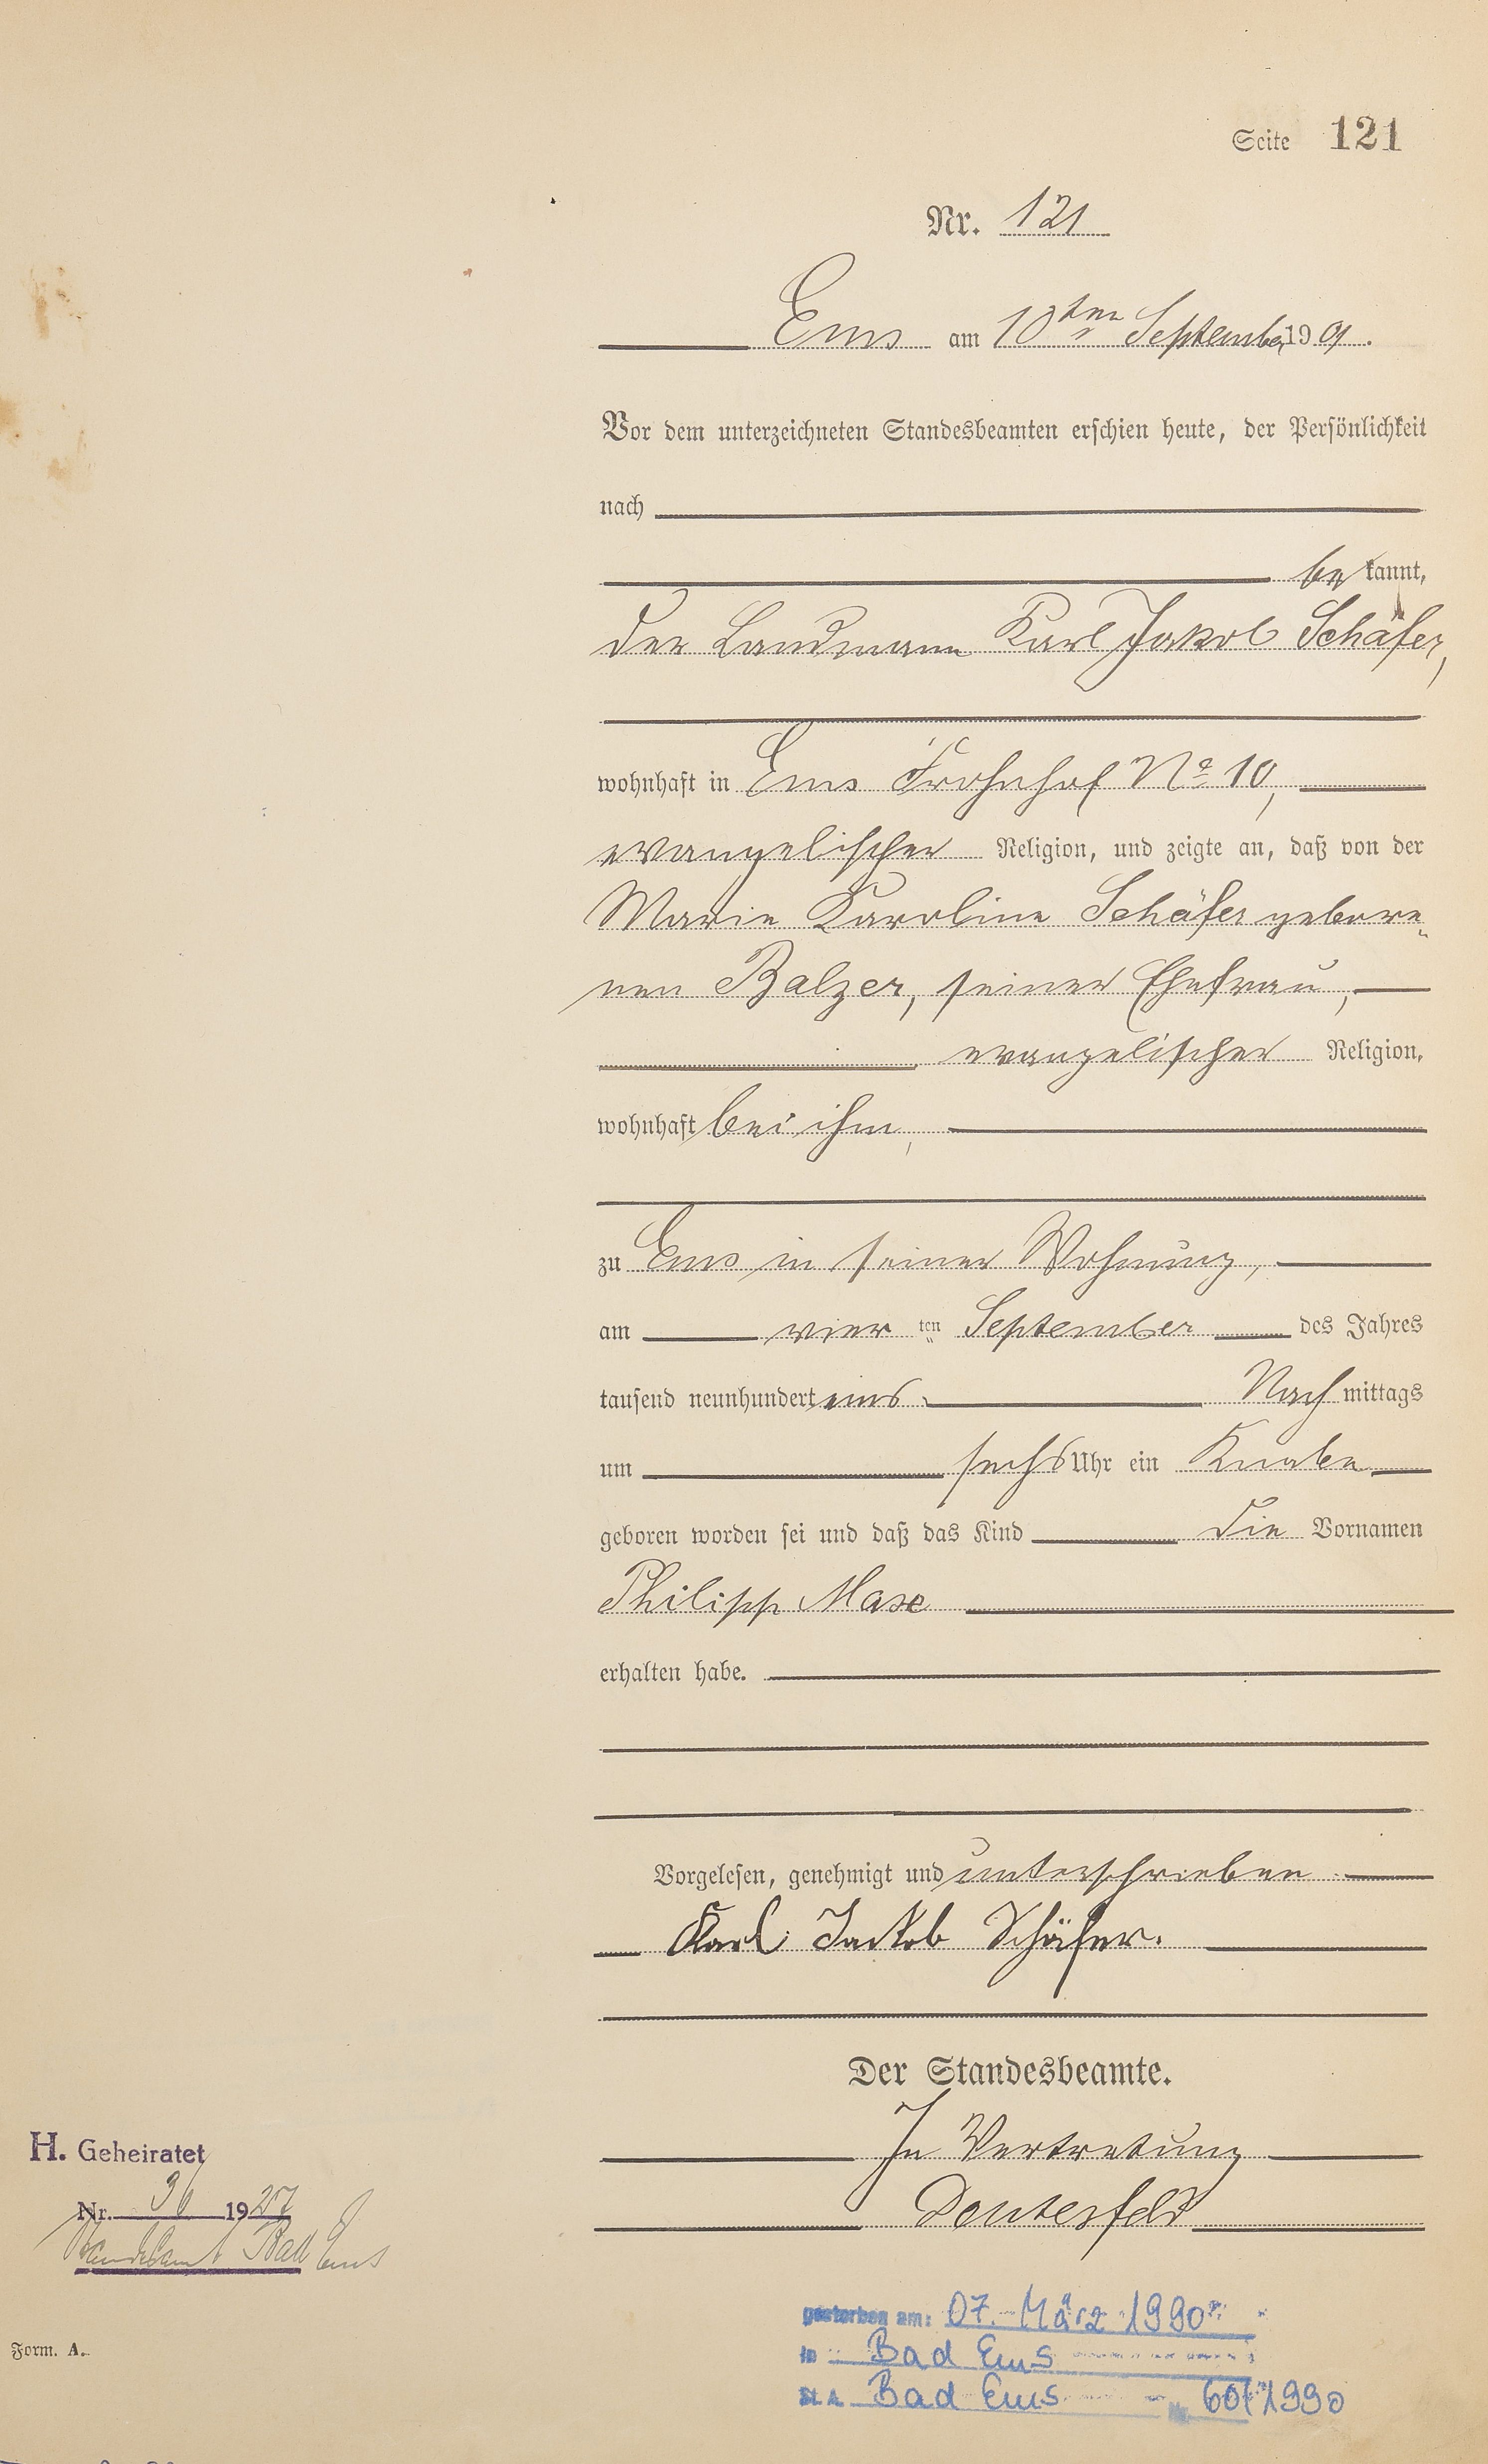 Seite 121
Nr. 121
Ems am 10ten September 1901.
Vor dem unterzeichneten Standesbeamten erschien heute, der Persönlichkeit
nach
bekannt,
der Landmann Karl Jakob Schäfer,
wohnhaft in Ems Frohnhof No 10,
evangelischer Religion, und zeigte an, daß von der
Marie Karoline Schäfer gebore„
nen Balzer, seiner Ehefrau,
evangelischer Religion,
wohnhaft bei ihm,
zu Ems in seiner Wohnung,
am vier ten September des Jahres
tausend neunhundert eins Nachmittags
um sechs Uhr ein Knabe
geboren worden sei und daß das Kind die Vornamen
Philipp Max
erhalten habe.
Vorgelesen, genehmigt und unterschrieben
Karl Jakob Schäfer.
Der Standesbeamte.
In Vertretung
H. Geheiratet
Nr. 1927
Standesamt Bad Ems
gestorben am: 07. März 1990
in Bad Ems
St. A. Bad Ems 60/1990
Form. A.